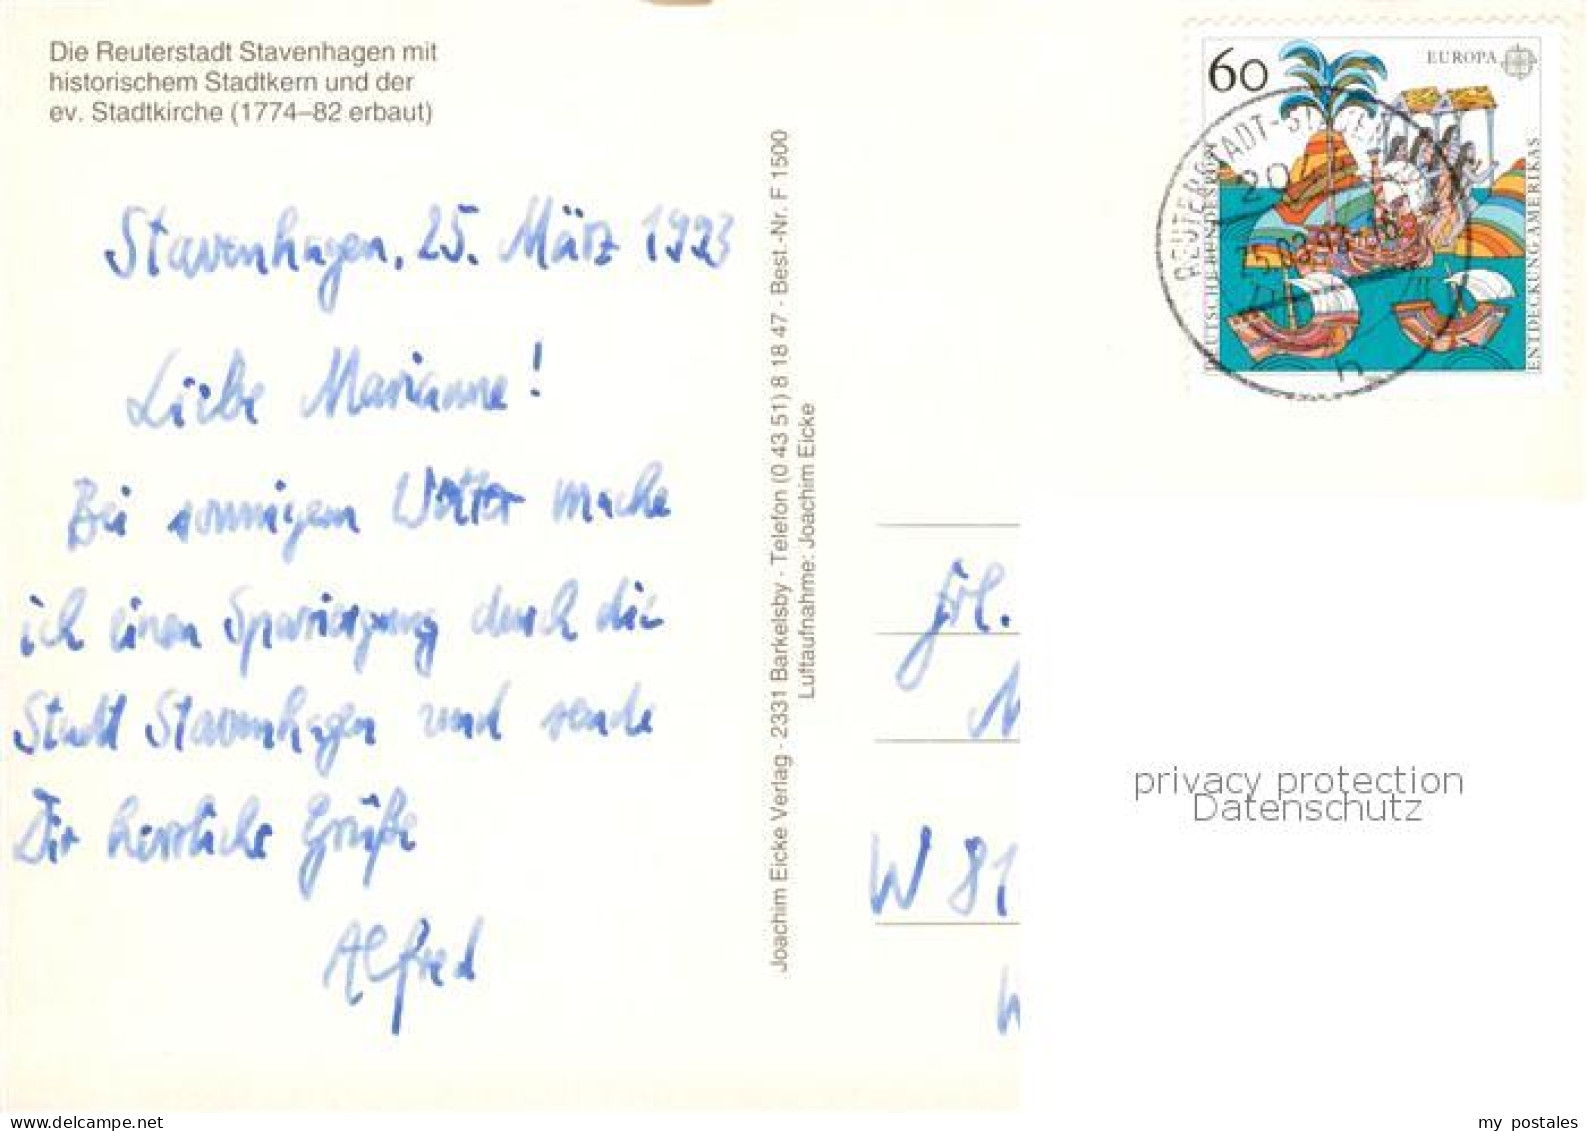 Die Reuterstadt Stavenhagen mit
historischem Stadtkern und der
ev. Stadtkirche (1774–82 erbaut)
Stavenhagen, 25. März 1993
Liebe Marianne!
Bei sonnigem Wetter mache
ich einen Spaziergang durch die
Stadt Stavenhagen und sende
Dir herzliche Grüße
Alfred
Joachim Eicke Verlag · 2331 Barkelsby · Telefon (0 43 51) 8 18 47 · Best.-Nr. F 1500
Luftaufnahme: Joachim Eicke
60
EUROPA
DEUTSCHE BUNDESPOST
ENTDECKUNG AMERIKAS
h
Frl.
M
W 81
privacy protection
Datenschutz
my postales